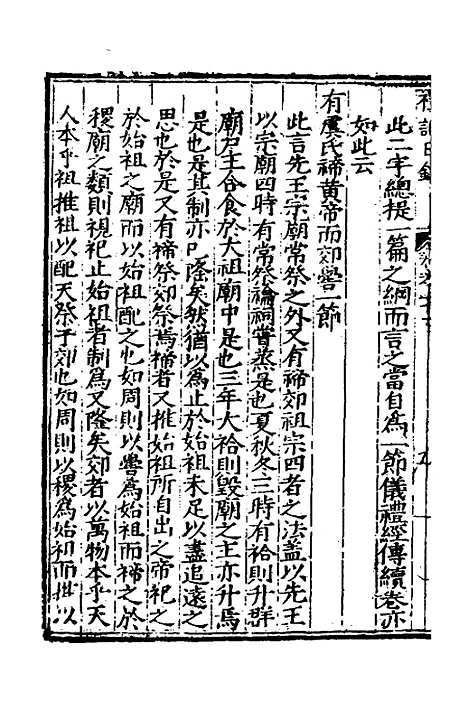 禮記日錄
此二字總提一篇之綱而言之當自為一節儀禮經傳續卷亦
如此云
有虞氏禘黄帝而郊嚳一節
此言先王宗廟常祭之外又有禘郊祖宗四者之法蓋以先王
以宗廟四時有常祭禴祠嘗烝是也夏秋冬三時有祫則升群
廟之主合食於大祖廟中是也三年大祫則毀廟之主亦升焉
是也是其制亦已隆矣然猶以為止於始祖未足以盡追遠之
思也於是又有禘祭郊祭焉禘者又推始祖所自出之帝祀之
於始祖之廟而以始祖配之也如周則以嚳為始祖而禘之於
稷廟之類則視祀止始祖者制為又隆矣郊者以萬物本乎天
人本乎祖推祖以配天祭于郊也如周則以稷為始祖而推以